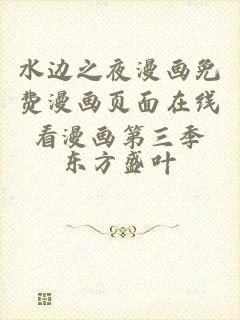 水边之夜漫画免
费漫画页面在线
看漫画第三季
东方盛叶